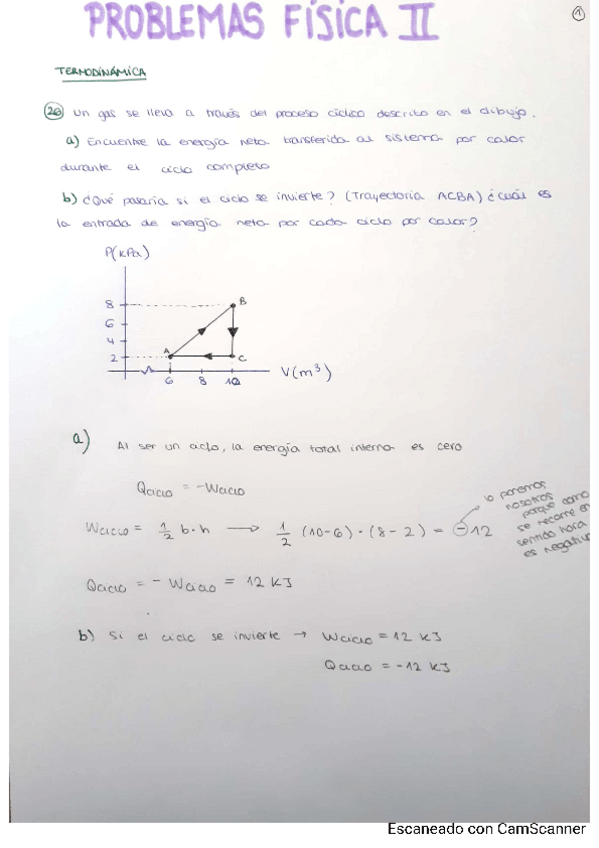 PROBLEMAS FÍSICA II
1
TERMODINÁMICA
26 Un gas se lleva a través del proceso cíclico descrito en el dibujo.
a) Encuentre la energía neta transferida al sistema por calor
durante el ciclo completo
b) ¿Qué pasaría si el ciclo se invierte? (Trayectoria ACBA) ¿cuál es
la entrada de energía neta por cada ciclo por calor?
P(kPa)
8
B
6
4
A
2
C
6 8 10
V(m³)
a) Al ser un ciclo, la energía total interna es cero
Qciclo = -Wciclo
lo ponemos
nosotros
porque como
se recorre en
sentido hora
es negativo
Wciclo = 1/2 b·h → 1/2 (10-6)·(8-2) = -12
Qciclo = - Wciclo = 12 KJ
b) Si el ciclo se invierte → Wciclo = 12 KJ
Qciclo = -12 KJ
Escaneado con CamScanner